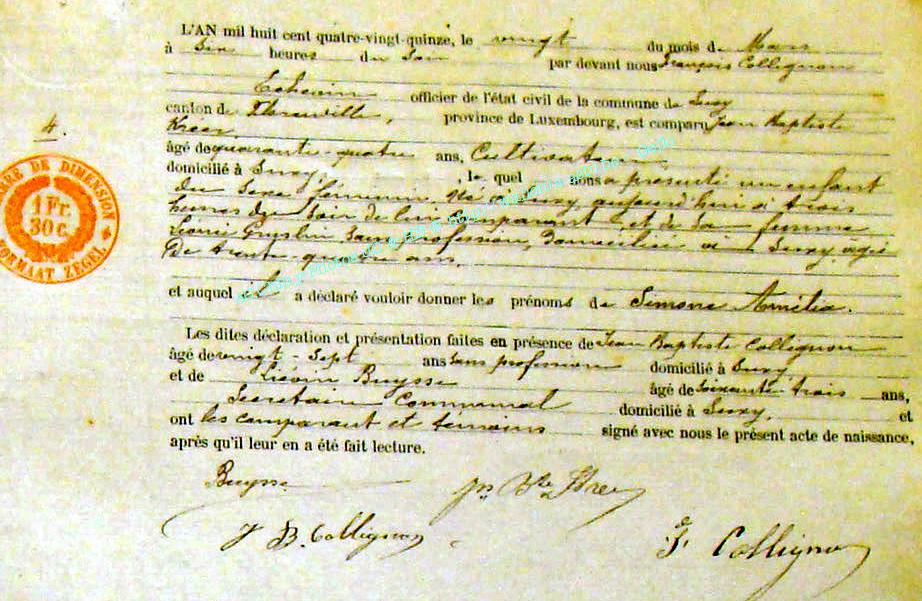 L'AN mil huit cent quatre-vingt-quinze, le vingt du mois de Mars
à Six heures du Soir par devant nous François Collignon
Echevin officier de l'état civil de la commune de Suxy
canton de Florenville, province de Luxembourg, est comparu Jean Baptiste
4.
âgé de quarante-quatre ans, Cultivateur
domicilié à Suxy, le quel nous a présenté un enfant
du Sexe féminin, Né à Suxy, aujourd'hui à trois
heures du Soir de lui comparant et de Sa femme
Sans profession, Domiciliée à Suxy, agée
De trente quatre ans,
et auquel il a déclaré vouloir donner les prénoms de Simone Amélie.
Les dites déclaration et présentation faites en présence de Jean Baptiste Collignon
âgé de vingt-Sept ans Sans profession domicilié à Suxy
et de Liévin Buysse âgé de Soixante-trois ans,
Secrétaire Communal domicilié à Suxy, et
ont les comparant et témoins signé avec nous le présent acte de naissance,
après qu'il leur en a été fait lecture.
Buysse
J B. Collignon
F. Collignon
DE DIMENSION
1 Fr.
30 c.
FORMAAT ZEGEL